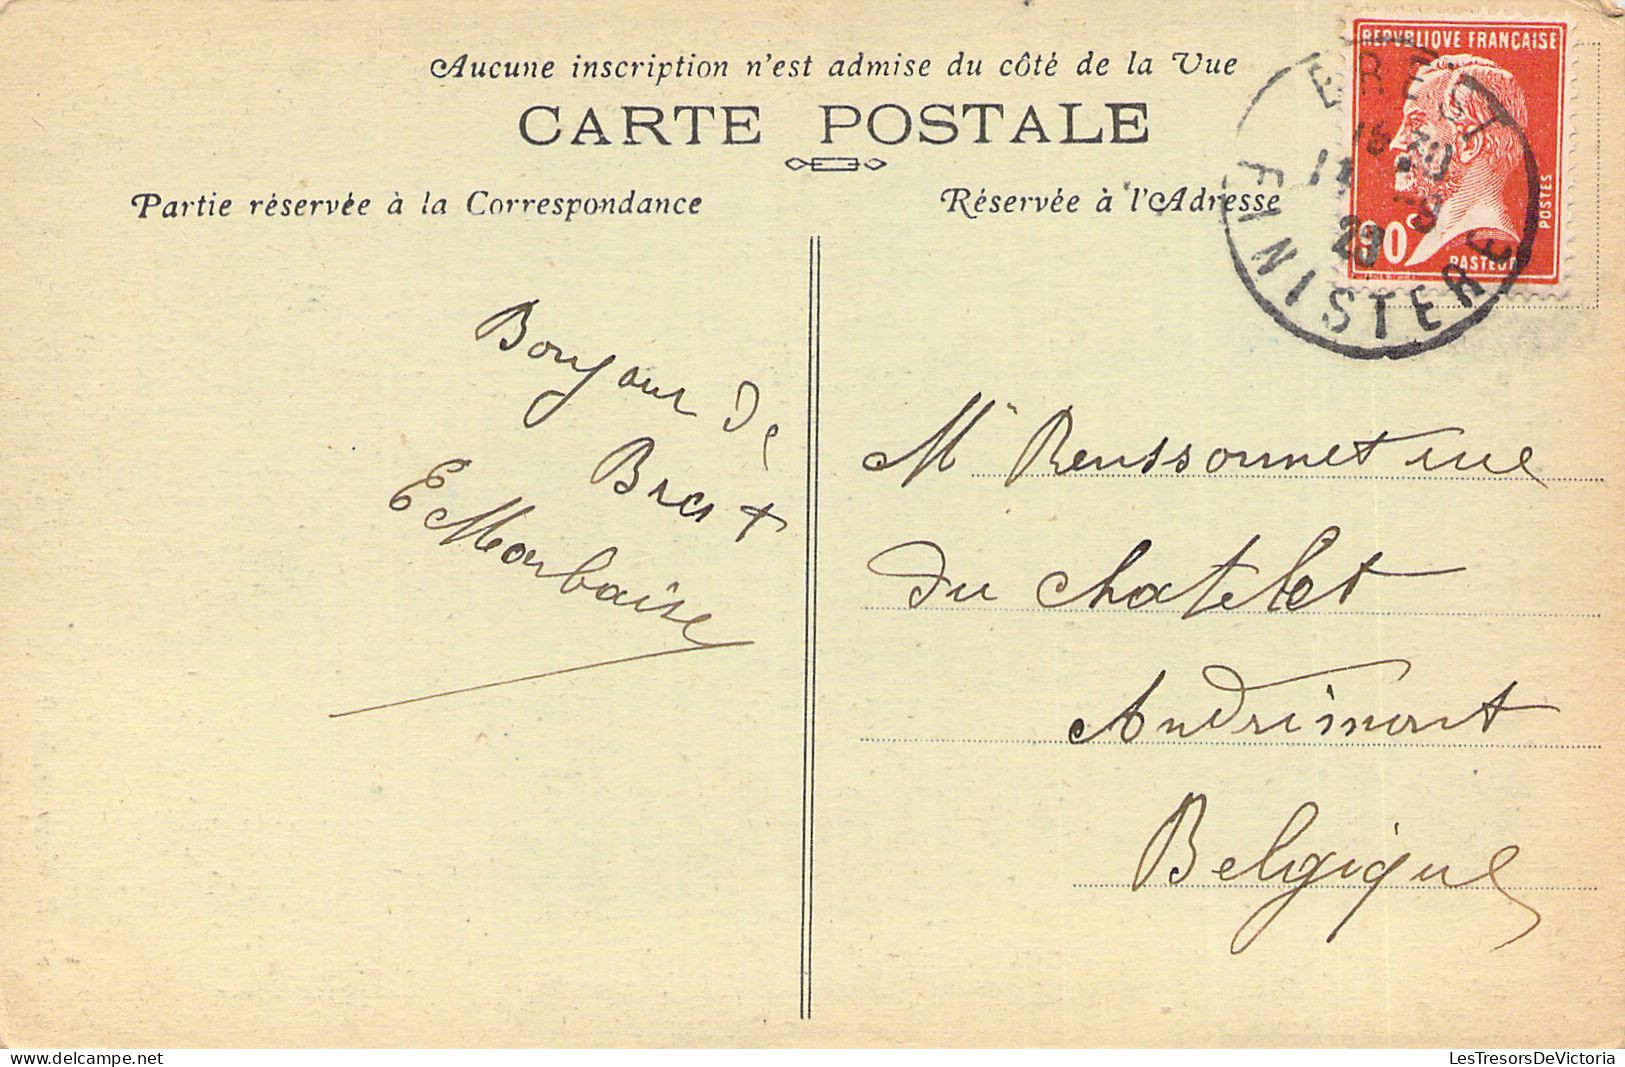 Aucune inscription n'est admise du côté de la Vue
CARTE POSTALE
Partie réservée à la Correspondance
Réservée à l'Adresse
REPUBLIQUE FRANÇAISE
POSTES
90
PASTEUR
BREST
FINISTERE
Bonjour de
Brest
E Monbaise
Mr Reussonnet rue
du Chatelet
Andrimont
Belgique
picclick_del
LesTresorsDeVictoria